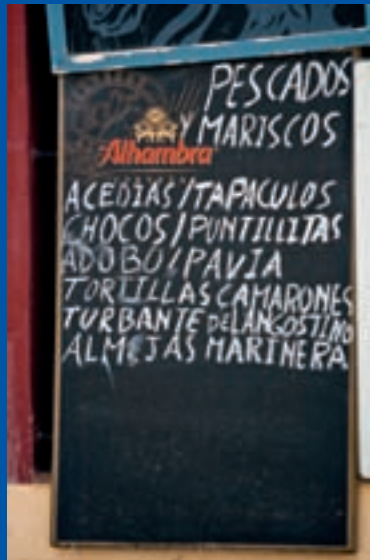 PESCADOS
Y MARISCOS
Alhambra
ACEDIAS/TAPACULOS
CHOCOS/PUNTILLITAS
ADOBO/PAVIA
TORTILLAS CAMARONES
TURBANTE DE LANGOSTINO
ALMEJAS MARINERA